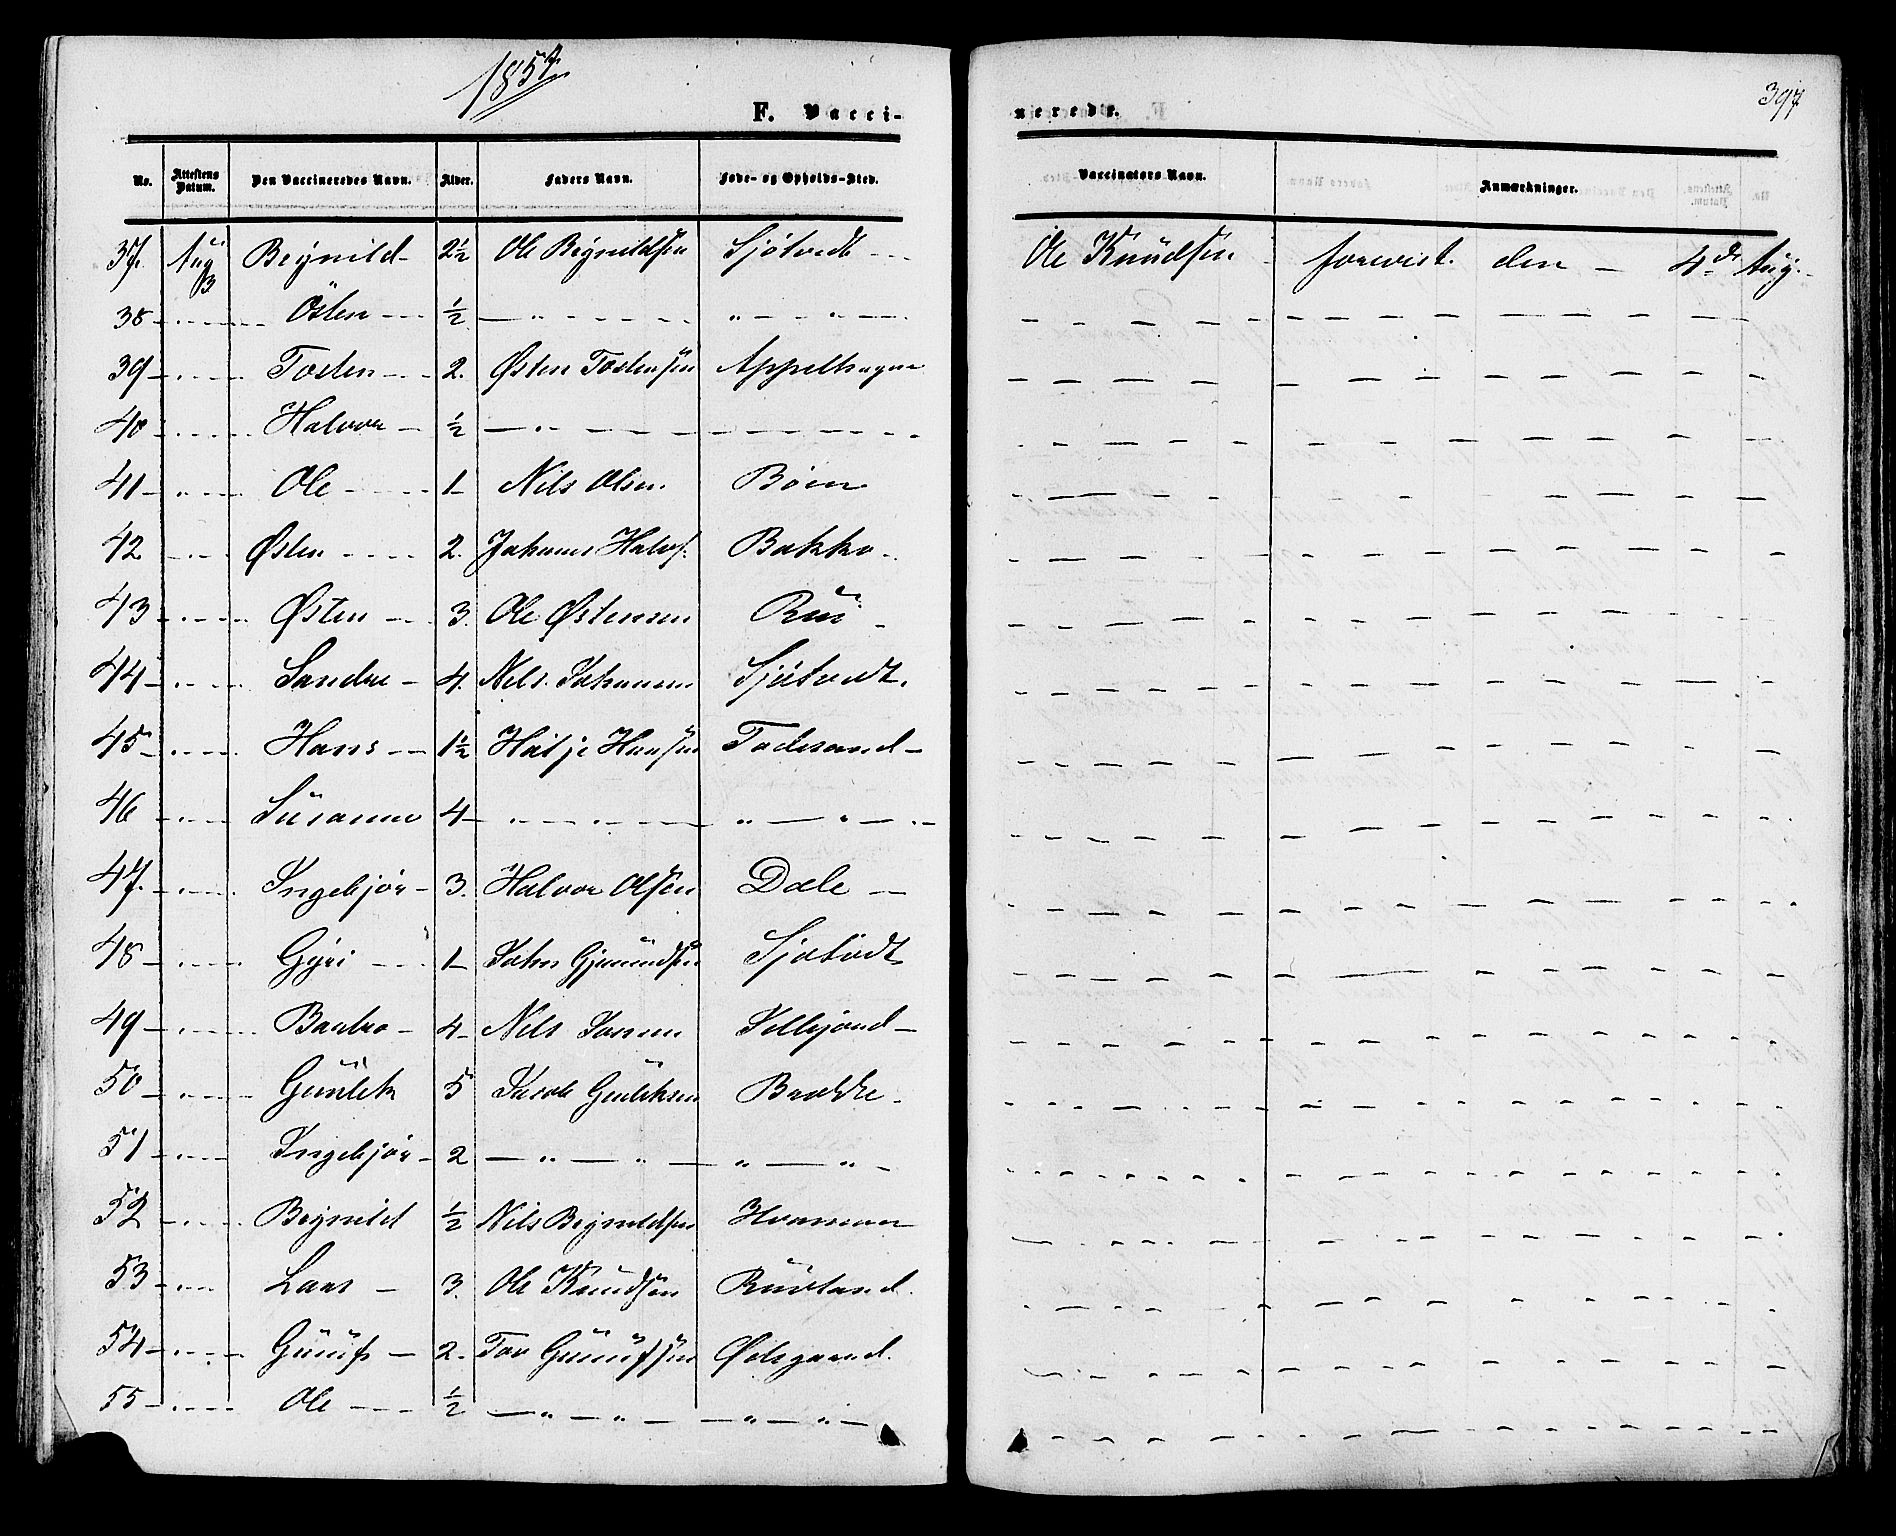 1857
397
F. Vacci-
nerede.
No. Attestens Datum. Den Vaccineredes Navn. Alder. Faders Navn. Føde- og Opholds-Sted. Vaccinators Navn. Anmærkninger.
37. Aug 3 Brynild 2½ Ole Brynildsen Sjötvedt Ole Knudsen forevist den 4de Aug.
38 Östen ½ " " "
39 Tosten 2. Østen Tostensen
40 Halvor ½ "
41 Ole 1 Nils Olsen Böen
42 Østen 2. Johannes Halvs. Bakko
43 Østen 3. Ole Østensen Rui
44 Sandre 4. Nils Johannesen Sjötvedt.
45 Hans 1½ Hansen
46 Susanne 4 " "
47. Ingebjör 3. Halvor Olsen Dale
48 Gyri 1 John Gjermundsen Sjötvedt
49 Barbro 4 Nils
50 Gunlek 5 Jacob Gunleksen
51 Ingebjör 2 " " " "
52 Brynild ½ Nils Brynildsen
53 Lars 3. Ole Knudsen Rustand.
54 Gunuf 2. Tov Gunufsen Ødegaard.
55 Ole ½ " " " "